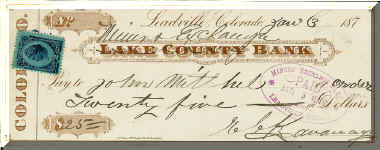 No
Leadville Colorado, Jan 3 187
Miners Exchange
LAKE COUNTY BANK
COLORADO
Pay to John Mitchel or order
Twenty five Dollars
$25
MINERS EXCHANGE
PAID
Kavanagh